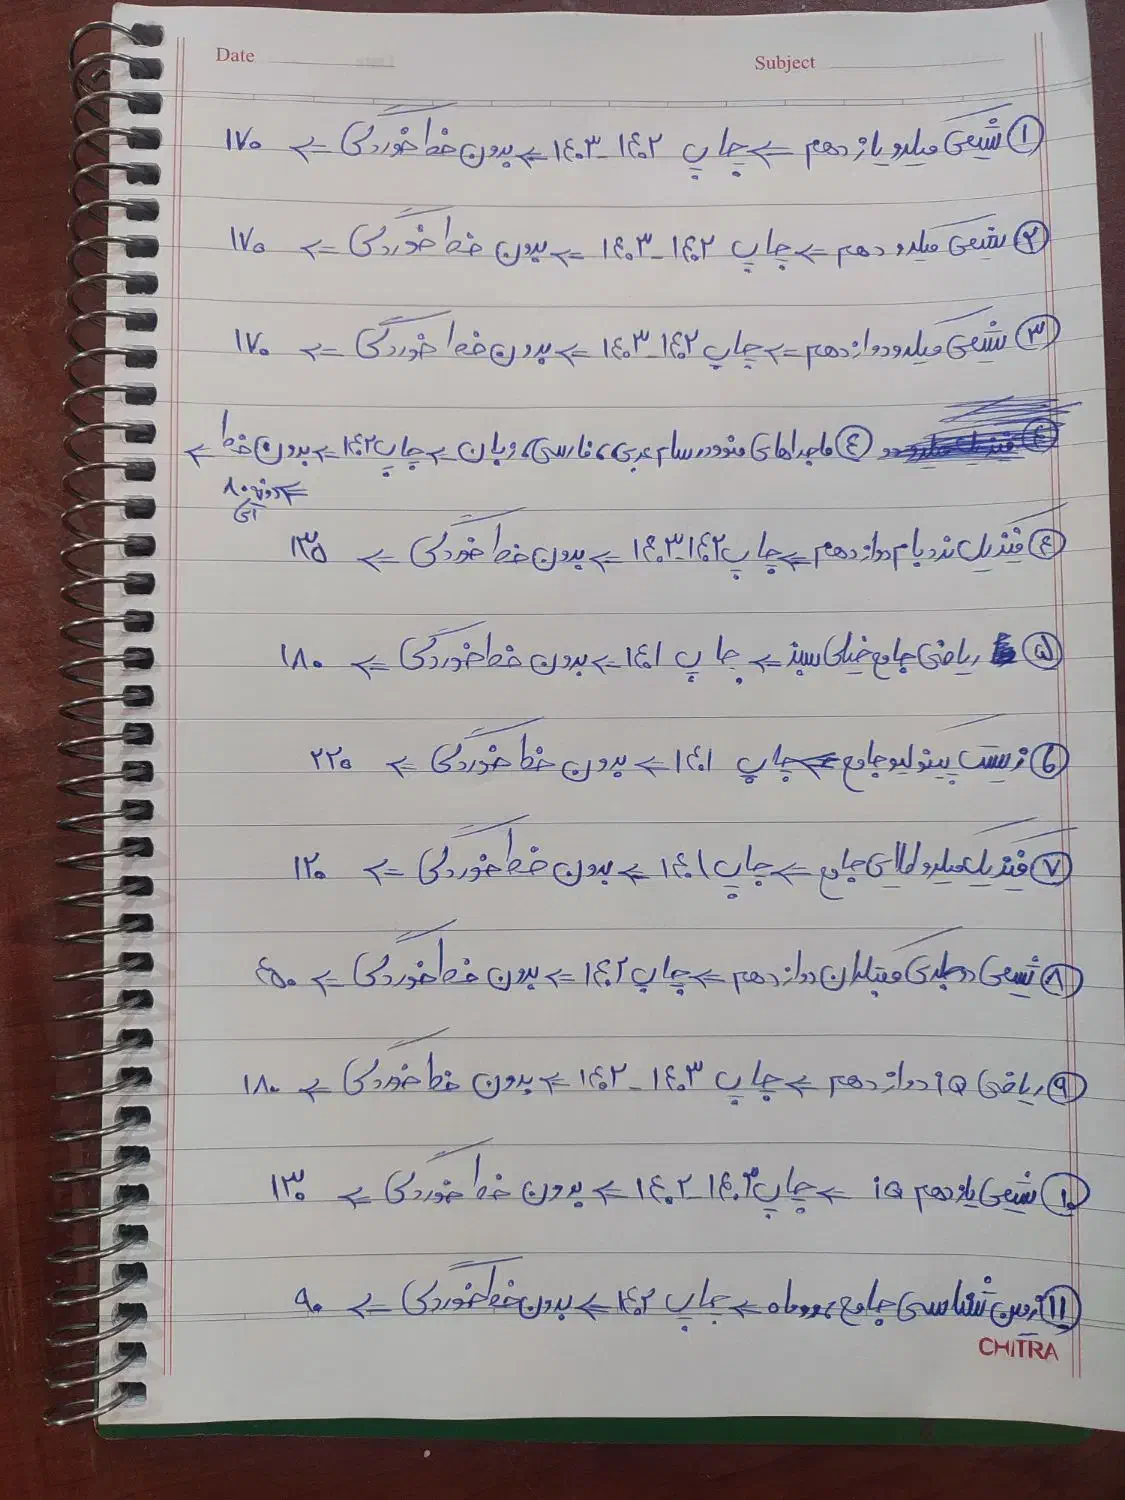 Date Subject
۱ شیمی میکرو یازدهم ⇐ چاپ ۱۴۰۲-۱۴۰۳ ⇐ بدون خط خوردگی ⇐ ۱۷۰
۲ شیمی میکرو دهم ⇐ چاپ ۱۴۰۲-۱۴۰۳ ⇐ بدون خط خوردگی ⇐ ۱۷۰
۳ شیمی میکرو دوازدهم ⇐ چاپ ۱۴۰۲-۱۴۰۳ ⇐ بدون خط خوردگی ⇐ ۱۷۰
۴ ماجراهای من و درسام عربی، فارسی، و زبان ⇐ چاپ ۱۴۰۲ ⇐ بدون خط ⇐
⇐ ۸۰
۴ فیزیک نردبام دوازدهم ⇐ چاپ ۱۴۰۲-۱۴۰۳ ⇐ بدون خط خوردگی ⇐ ۱۳۵
۵ ریاضی جامع خیلی سبز ⇐ چاپ ۱۴۰۱ ⇐ بدون خط خوردگی ⇐ ۱۸۰
۶ زیست جامع ⇐ چاپ ۱۴۰۱ ⇐ بدون خط خوردگی ⇐ ۲۲۰
۷ فیزیک میکرو طلایی جامع ⇐ چاپ ۱۴۰۱ ⇐ بدون خط خوردگی ⇐ ۱۲۰
۸ شیمی دوجلدی مبتکران دوازدهم ⇐ چاپ ۱۴۰۲ ⇐ بدون خط خوردگی ⇐ ۴۵۰
۹ ریاضی IQ دوازدهم ⇐ چاپ ۱۴۰۳-۱۴۰۲ ⇐ بدون خط خوردگی ⇐ ۱۸۰
۱۰ شیمی یازدهم IQ ⇐ چاپ ۱۴۰۳-۱۴۰۲ ⇐ بدون خط خوردگی ⇐ ۱۳۰
۱۱ زمین شناسی جامع مهروماه ⇐ چاپ ۱۴۰۲ ⇐ بدون خط خوردگی ⇐ ۹۰
CHITRA